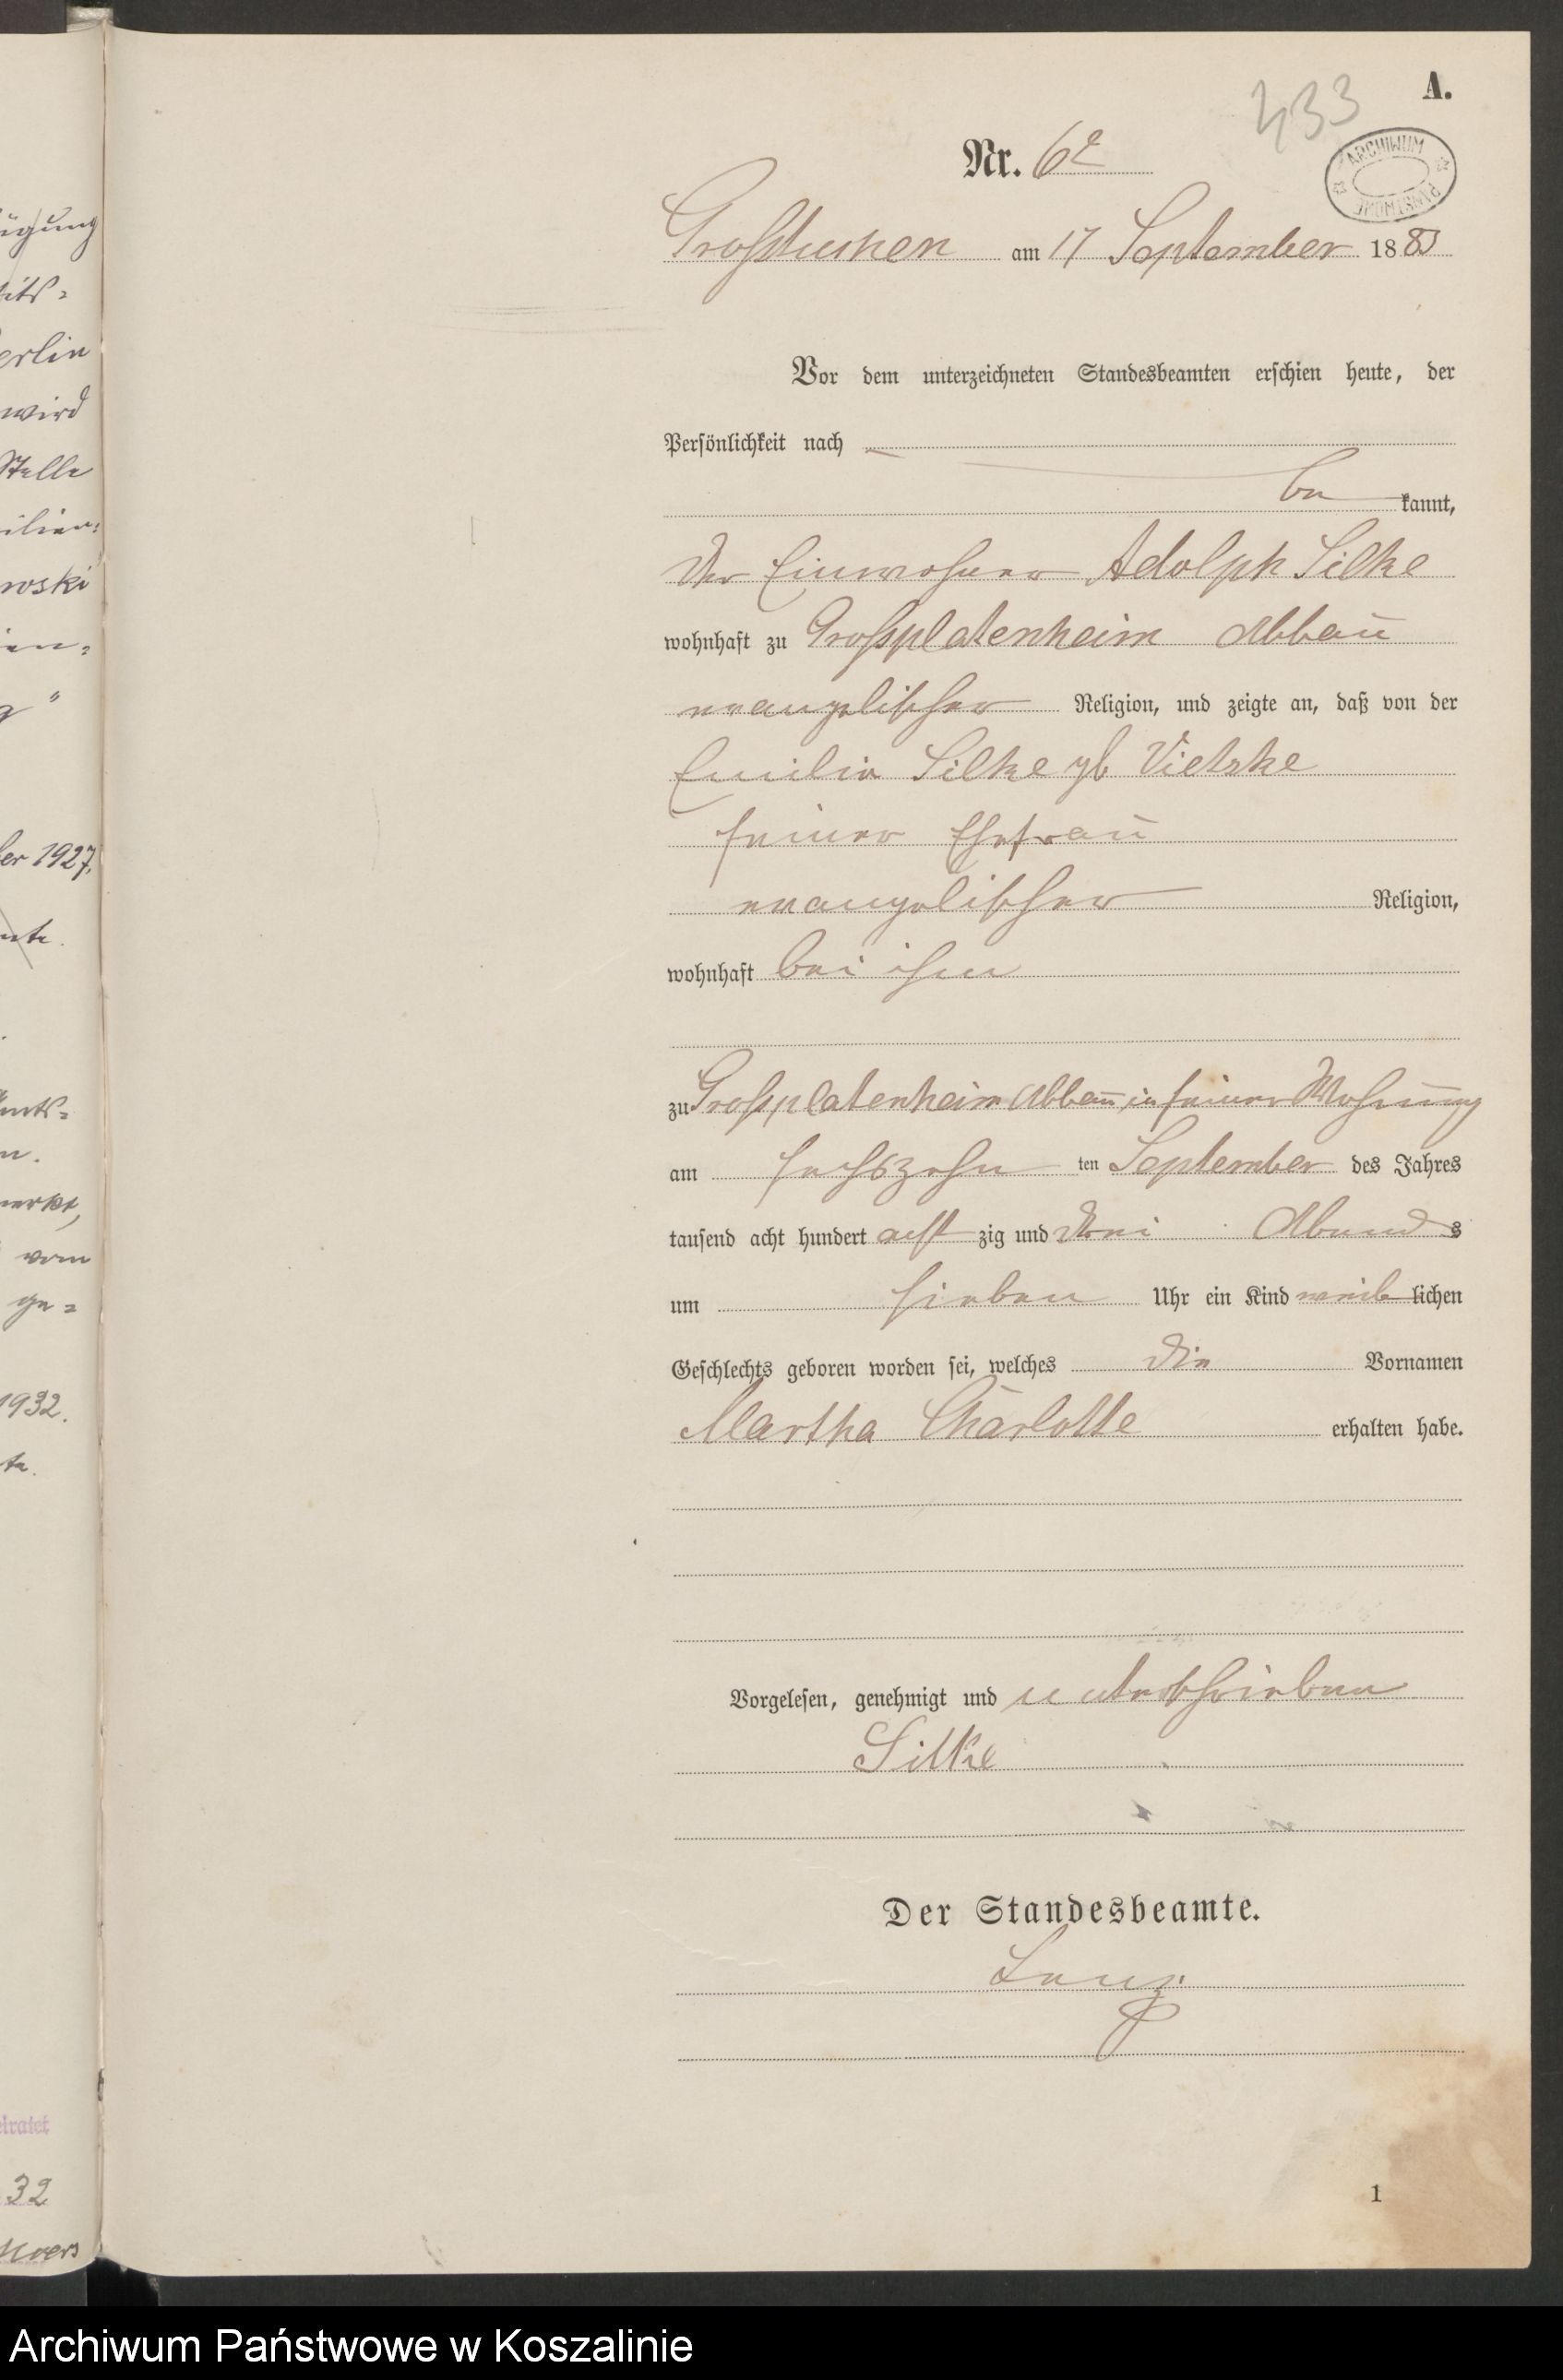 A.
433
Nr. 62
ARCHIWUM PAŃSTWOWE
Großtuchen am 17 September 1883
Vor dem unterzeichneten Standesbeamten erschien heute, der
Persönlichkeit nach
be kannt,
der Einwohner Adolph Silke
wohnhaft zu Großplatenheim Abbau
evangelischer Religion, und zeigte an, daß von der
Emilie Silke gb Vietzke
seiner Ehefrau
evangelischer Religion,
wohnhaft bei ihm
zu Großplatenheim Abbau, in seiner Wohnung
am sechszehn ten September des Jahres
tausend acht hundert acht zig und drei Abends
um sieben Uhr ein Kind weib lichen
Geschlechts geboren worden sei, welches die Vornamen
Martha Charlotte erhalten habe.
Vorgelesen, genehmigt und unterschrieben
Silke
Der Standesbeamte.
1
ügung
erlin
wird
Stelle
ilien-
wski
ber 1927.
merkt,
vom
ge=
1932.
eiratet
32
Archiwum Państwowe w Koszalinie